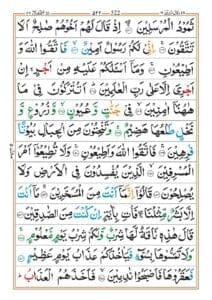 ٥٢٢ 522
ثَمُوْدُ الْمُرْسَلِيْنَ ۝ اِذْ قَالَ لَهُمْ اَخُوْهُمْ صٰلِحٌ اَلَا
تَتَّقُوْنَ ۝ اِنِّيْ لَكُمْ رَسُوْلٌ اَمِيْنٌ ۝ فَاتَّقُوا اللّٰهَ وَ
اَطِيْعُوْنِ ۝ وَمَاۤ اَسْـَٔلُكُمْ عَلَيْهِ مِنْ اَجْرٍ ۚ اِنْ
اَجْرِيَ اِلَّا عَلٰى رَبِّ الْعٰلَمِيْنَ ۝ اَتُتْرَكُوْنَ فِيْ مَا هٰهُنَاۤ
اٰمِنِيْنَ ۝ فِيْ جَنّٰتٍ وَّعُيُوْنٍ ۝ وَّزُرُوْعٍ وَّ
نَخْلٍ طَلْعُهَا هَضِيْمٌ ۝ وَتَنْحِتُوْنَ مِنَ الْجِبَالِ بُيُوْتًا
فٰرِهِيْنَ ۝ فَاتَّقُوا اللّٰهَ وَاَطِيْعُوْنِ ۝ وَلَا تُطِيْعُوْۤا اَمْرَ
الْمُسْرِفِيْنَ ۝ الَّذِيْنَ يُفْسِدُوْنَ فِي الْاَرْضِ وَلَا
يُصْلِحُوْنَ ۝ قَالُوْۤا اِنَّمَاۤ اَنْتَ مِنَ الْمُسَحَّرِيْنَ ۝ مَاۤ اَنْتَ
اِلَّا بَشَرٌ مِّثْلُنَا ۚ فَاْتِ بِاٰيَةٍ اِنْ كُنْتَ مِنَ الصّٰدِقِيْنَ ۝
قَالَ هٰذِهٖ نَاقَةٌ لَّهَا شِرْبٌ وَّلَكُمْ شِرْبُ يَوْمٍ مَّعْلُوْمٍ ۝
وَلَا تَمَسُّوْهَا بِسُوْٓءٍ فَيَاْخُذَكُمْ عَذَابُ يَوْمٍ عَظِيْمٍ ۝
فَعَقَرُوْهَا فَاَصْبَحُوْا نٰدِمِيْنَ ۝ فَاَخَذَهُمُ الْعَذَابُ